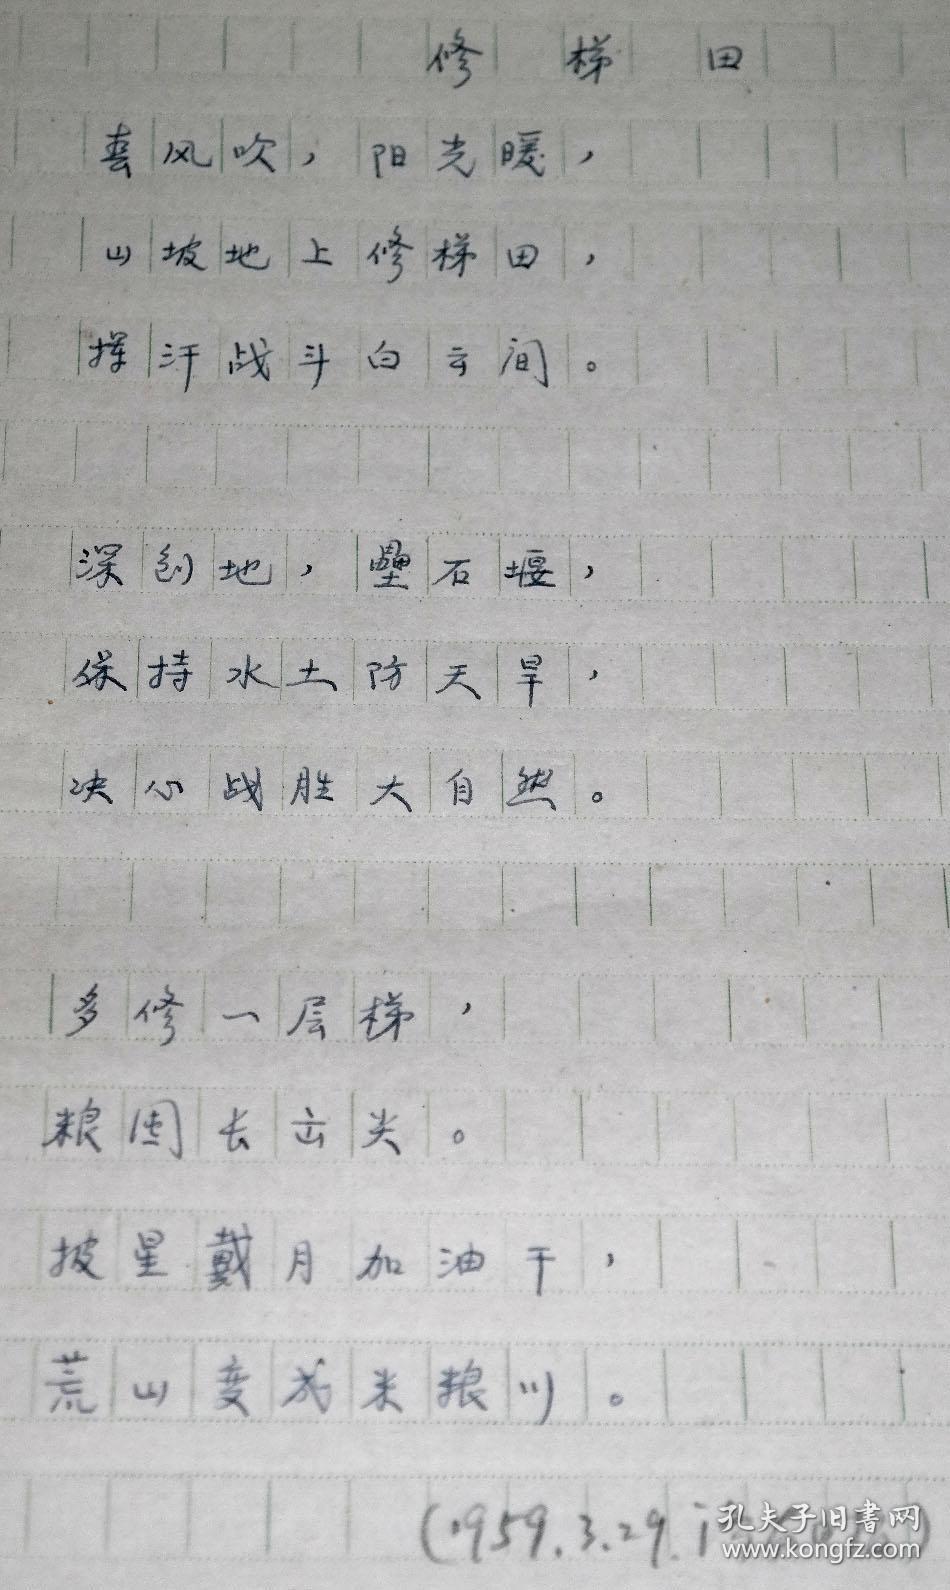 修梯田
春风吹，阳光暖，
山坡地上修梯田，
挥汗战斗白云间。
深刨地，壘石堰，
保持水土防天旱，
决心战胜大自然。
多修一层梯，
粮囤长出尖。
披星戴月加油干，
荒山变成米粮川。
(1959.3.29.
孔夫子旧书网
www.kongfz.com